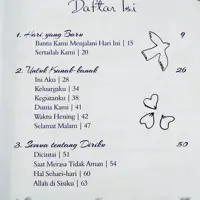 Daftar Isi
1. Hari yang Baru 9
Bantu Kami Menjalani Hari Ini | 15
Sertailah Kami | 20
2. Untuk Kanak-kanak 26
Ini Aku | 28
Keluargaku | 34
Kegiatanku | 38
Dunia Kami | 41
Waktu Hening | 42
Selamat Malam | 47
3. Semua tentang Diriku 50
Dicintai | 51
Saat Merasa Tidak Aman | 54
Hal Sehari-hari | 60
Allah di Sisiku | 63